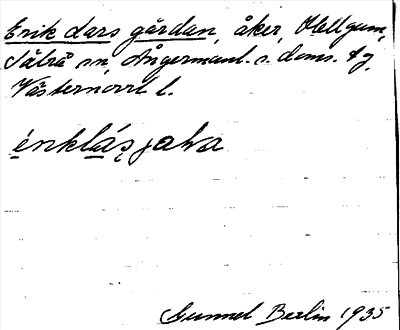 Erik Lars gårdan, åker, Hellgum,
Sålrå sn, Ångermanl. s. doms. tg,
Västernorrl l.
énklásjaḷva
Gunnel Berlin 1935